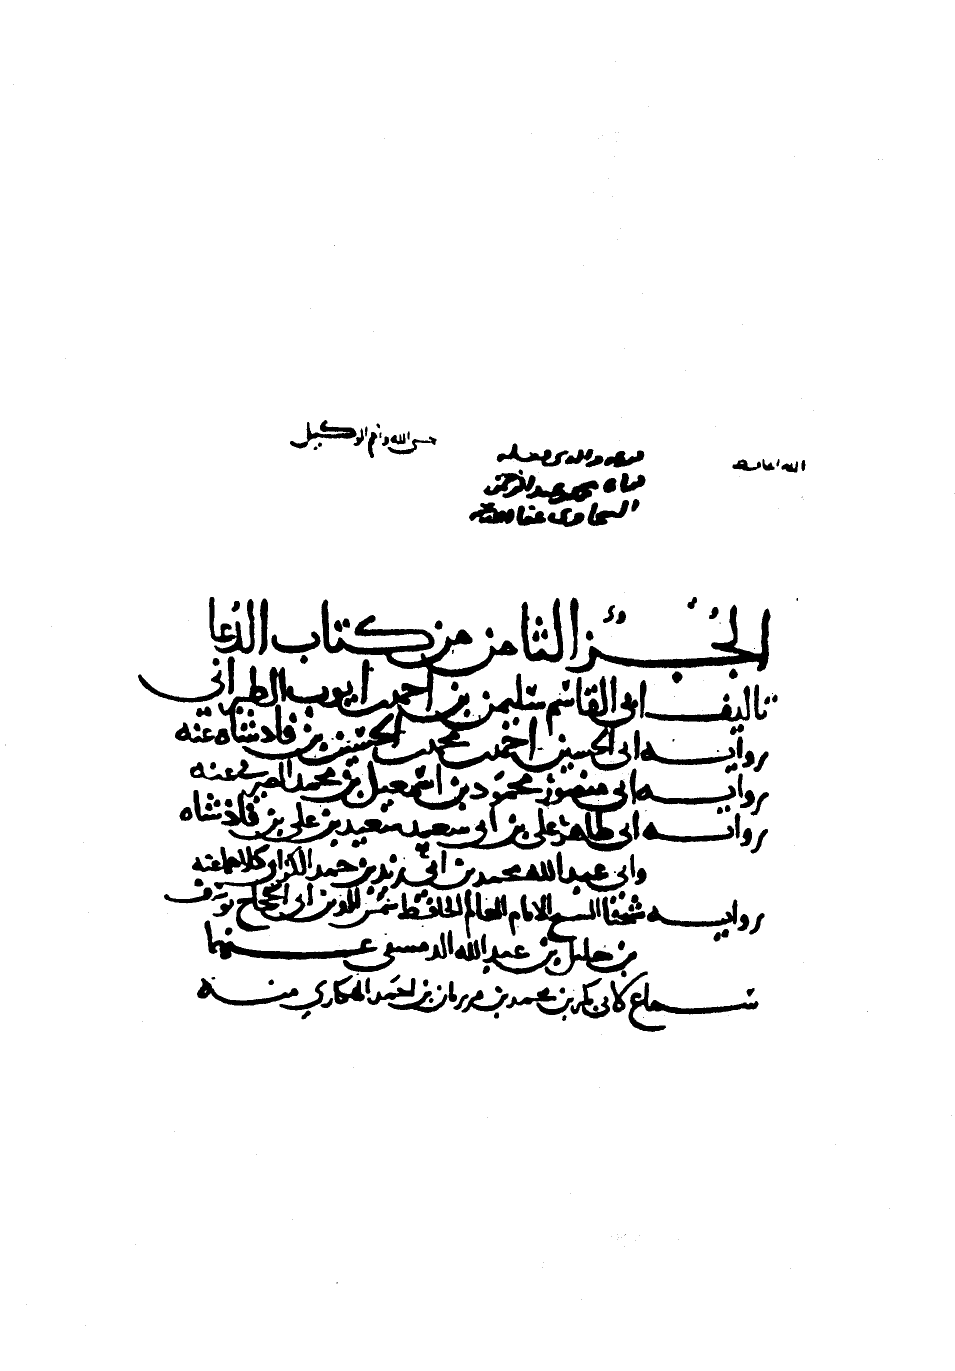 حسبي الله ونعم الوكيل
محمد عبد الرحمن
السخاوي عفا الله عنه
الجُزؤ الثامن من كتاب الدُعا
تاليف ابي القاسم سليمن بن احمد بن ايوب الطبراني
روايه ابي الحسين احمد بن محمد بن الحسين بن فاذشاه عنه
روايه ابي منصور محمود بن اسمعيل بن محمد الصيرفي عنه
روايه ابي طاهر علي بن ابي سعيد سعيد بن علي بن فاذشاه
وابي عبد الله محمد بن ابي زيد بن حمد الكراني كلاهما عنه
روايه شيخنا الشيخ الامام العالم الحافظ شمس الدين ابي الحجاج يوسف
بن خليل بن عبد الله الدمشقي عنهما
سماع لابي بكر بن محمد بن احمد الهكاري منه